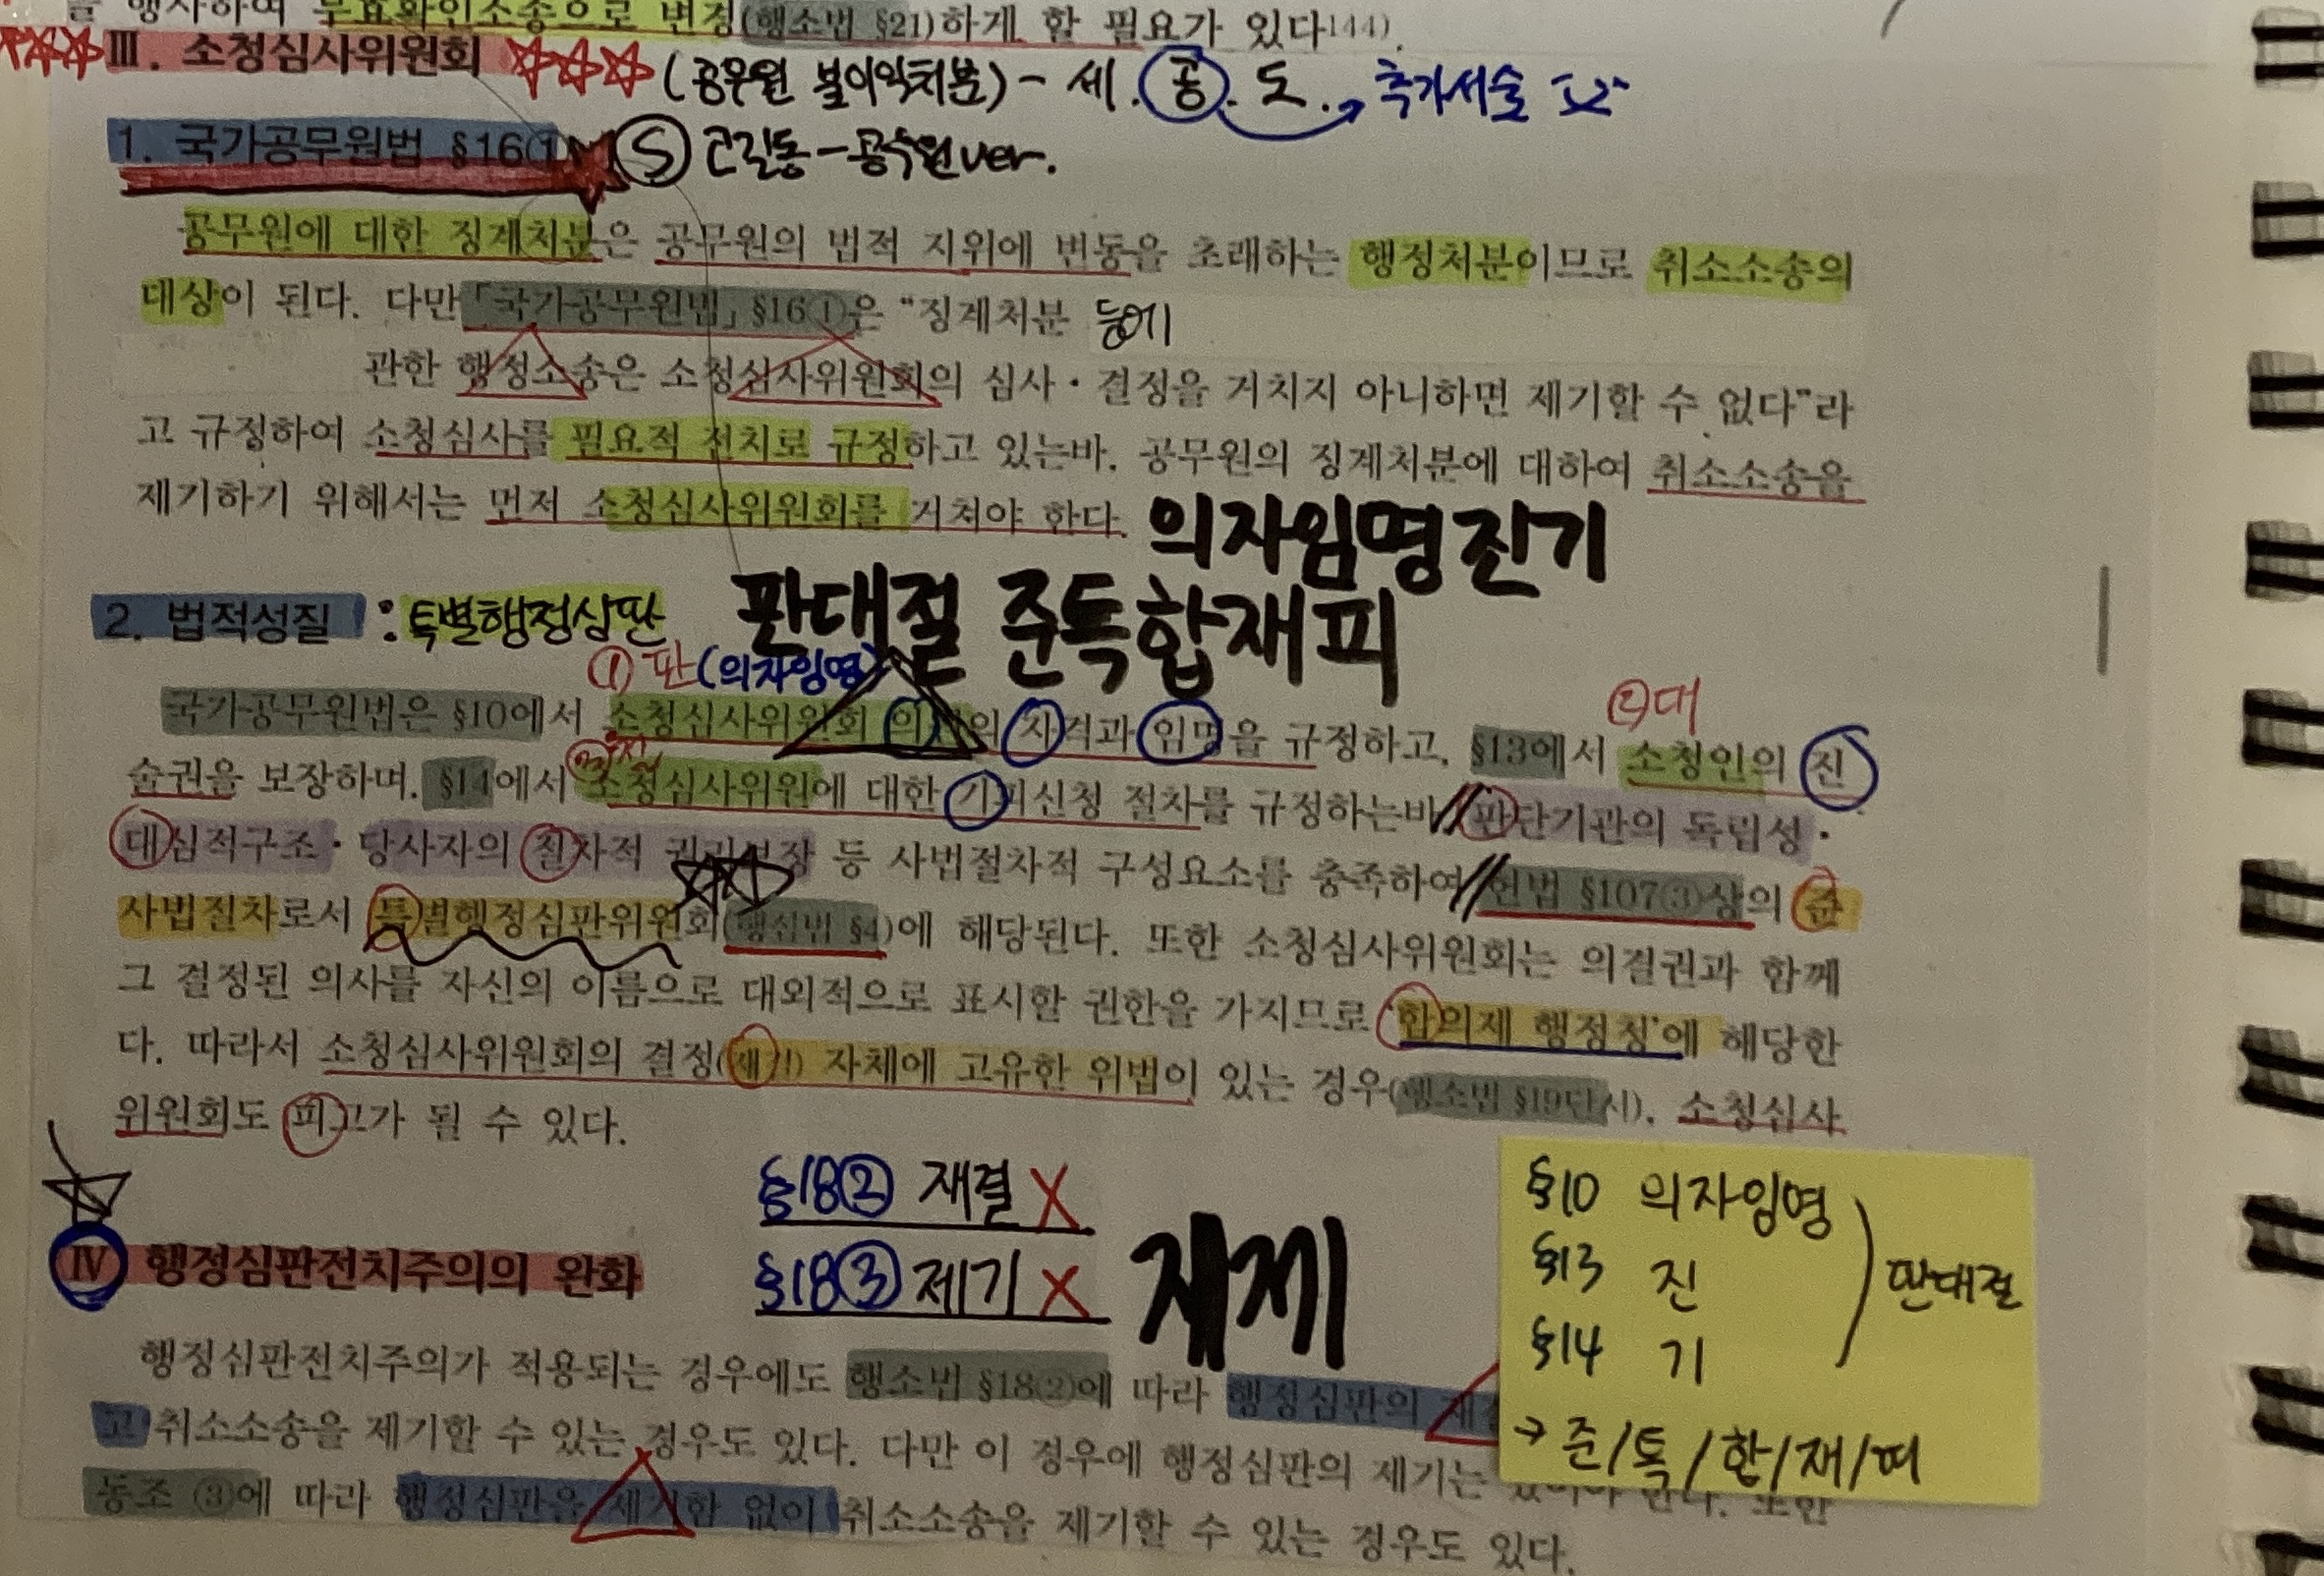 행사하여 무효확인소송으로 변경(행소법 §21)하게 할 필요가 있다144).
Ⅲ. 소청심사위원회 (공무원 불이익처분) - 세. 공. 도. → 추가서술
1. 국가공무원법 §16① Ⓢ 고길동-공무원ver.
공무원에 대한 징계처분은 공무원의 법적 지위에 변동을 초래하는 행정처분이므로 취소소송의
대상이 된다. 다만 「국가공무원법」 §16①은 “징계처분 등에
관한 행정소송은 소청심사위원회의 심사·결정을 거치지 아니하면 제기할 수 없다”라
고 규정하여 소청심사를 필요적 전치로 규정하고 있는바, 공무원의 징계처분에 대하여 취소소송을
제기하기 위해서는 먼저 소청심사위원회를 거쳐야 한다.
의자임명진기
2. 법적성질 : 특별행정심판 판대절 준특합재피
① 판(의자임명) ②대
국가공무원법은 §10에서 소청심사위원회 의 자격과 임명을 규정하고, §13에서 소청인의 진
술권을 보장하며, §14에서 소청심사위원에 대한 기피신청 절차를 규정하는바, 판단기관의 독립성·
대심적구조·당사자의 절차적 권리보장 등 사법절차적 구성요소를 충족하여 헌법 §107③상의 준
사법절차로서 특별행정심판위원회(행심법 §4)에 해당된다. 또한 소청심사위원회는 의결권과 함께
그 결정된 의사를 자신의 이름으로 대외적으로 표시할 권한을 가지므로 ‘합의제 행정청’에 해당한
다. 따라서 소청심사위원회의 결정(재결) 자체에 고유한 위법이 있는 경우(행소법 §19단서), 소청심사
위원회도 피고가 될 수 있다.
§18② 재결 X
§18③ 제기 X
재제
Ⅳ 행정심판전치주의의 완화
행정심판전치주의가 적용되는 경우에도 행소법 §18②에 따라 행정심판의
고 취소소송을 제기할 수 있는 경우도 있다. 다만 이 경우에 행정심판의 제기는
동조 ③에 따라 행정심판을 제기함 없이 취소소송을 제기할 수 있는 경우도 있다.
§10 의자임명
§13 진
§14 기
판대절
→ 준/특/합/재/피